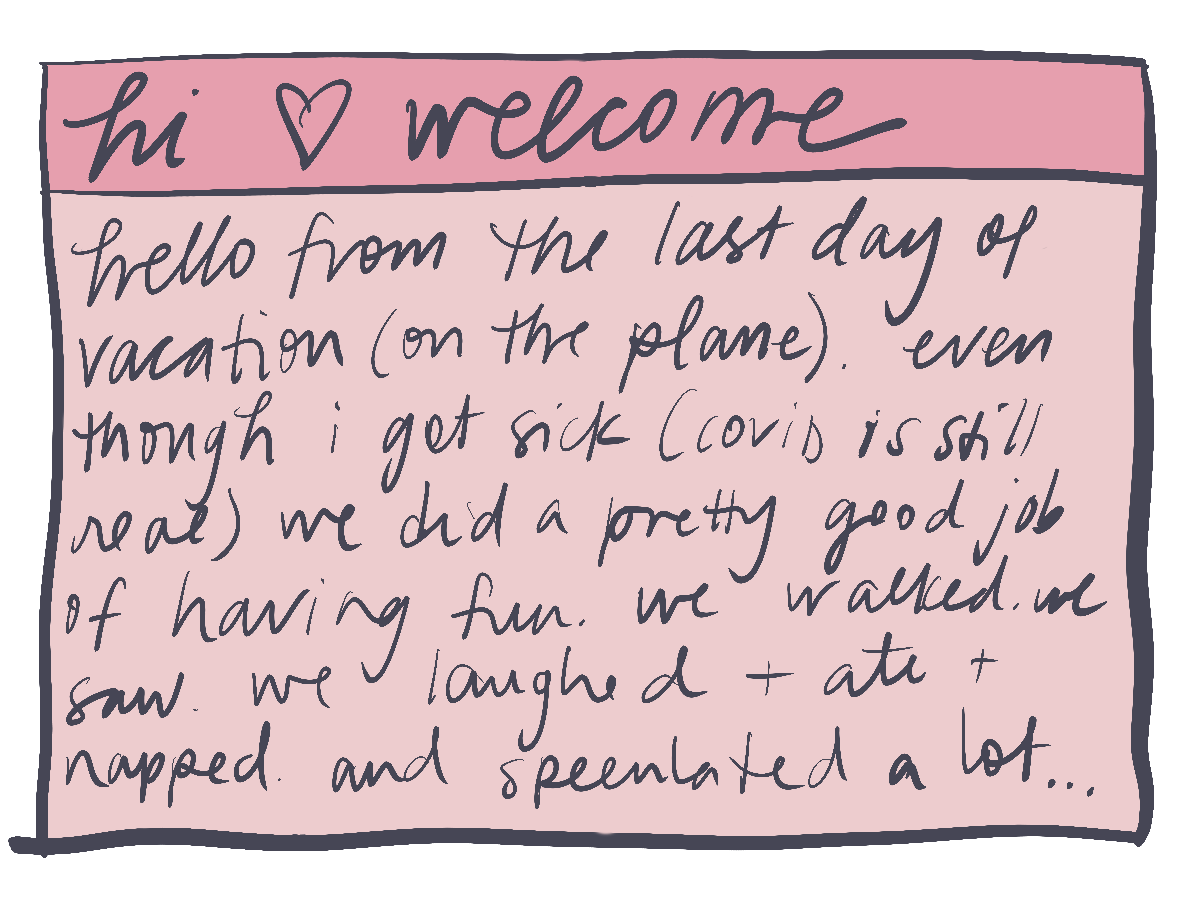 hi ♡ welcome
hello from the last day of
vacation (on the plane). even
though i got sick (covid is still
real) we did a pretty good job
of having fun. we walked. we
saw. we laughed + ate +
napped. and speculated a lot...